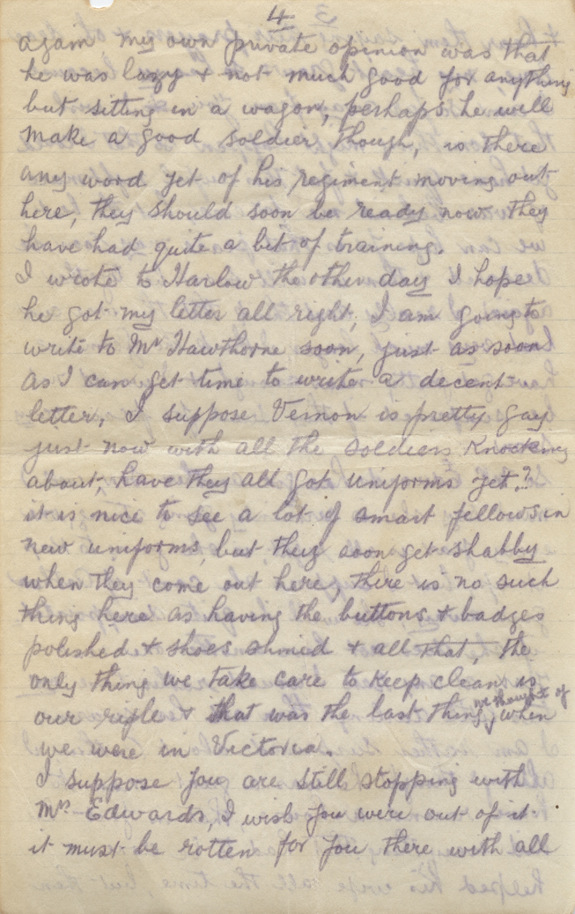 4
again, my own private opinion was that
he was lazy & not much good for anything
but sitting in a wagon, perhaps he will
make a good soldier though, is there
any word yet of his regiment moving out
here, they should soon be ready now they
have had quite a bit of training.
I wrote to Harlow the other day I hope
he got my letter all right, I am going to
write to Mr Hawthorne soon, just as soon
as I can get time to write a decent
letter, I suppose Vernon is pretty gay
just now with all the soldiers knocking
about, have they all got uniforms yet?
it is nice to see a lot of smart fellows in
new uniforms, but they soon get shabby
when they come out here, there is no such
thing here as having the buttons & badges
polished & shoes shined & all that, the
only thing we take care to keep clean is
our rifle & that was the last thing we thought of when
we were in Victoria.
I suppose you are still stopping with
Mrs Edwards, I wish you were out of it
it must be rotten for you there with all